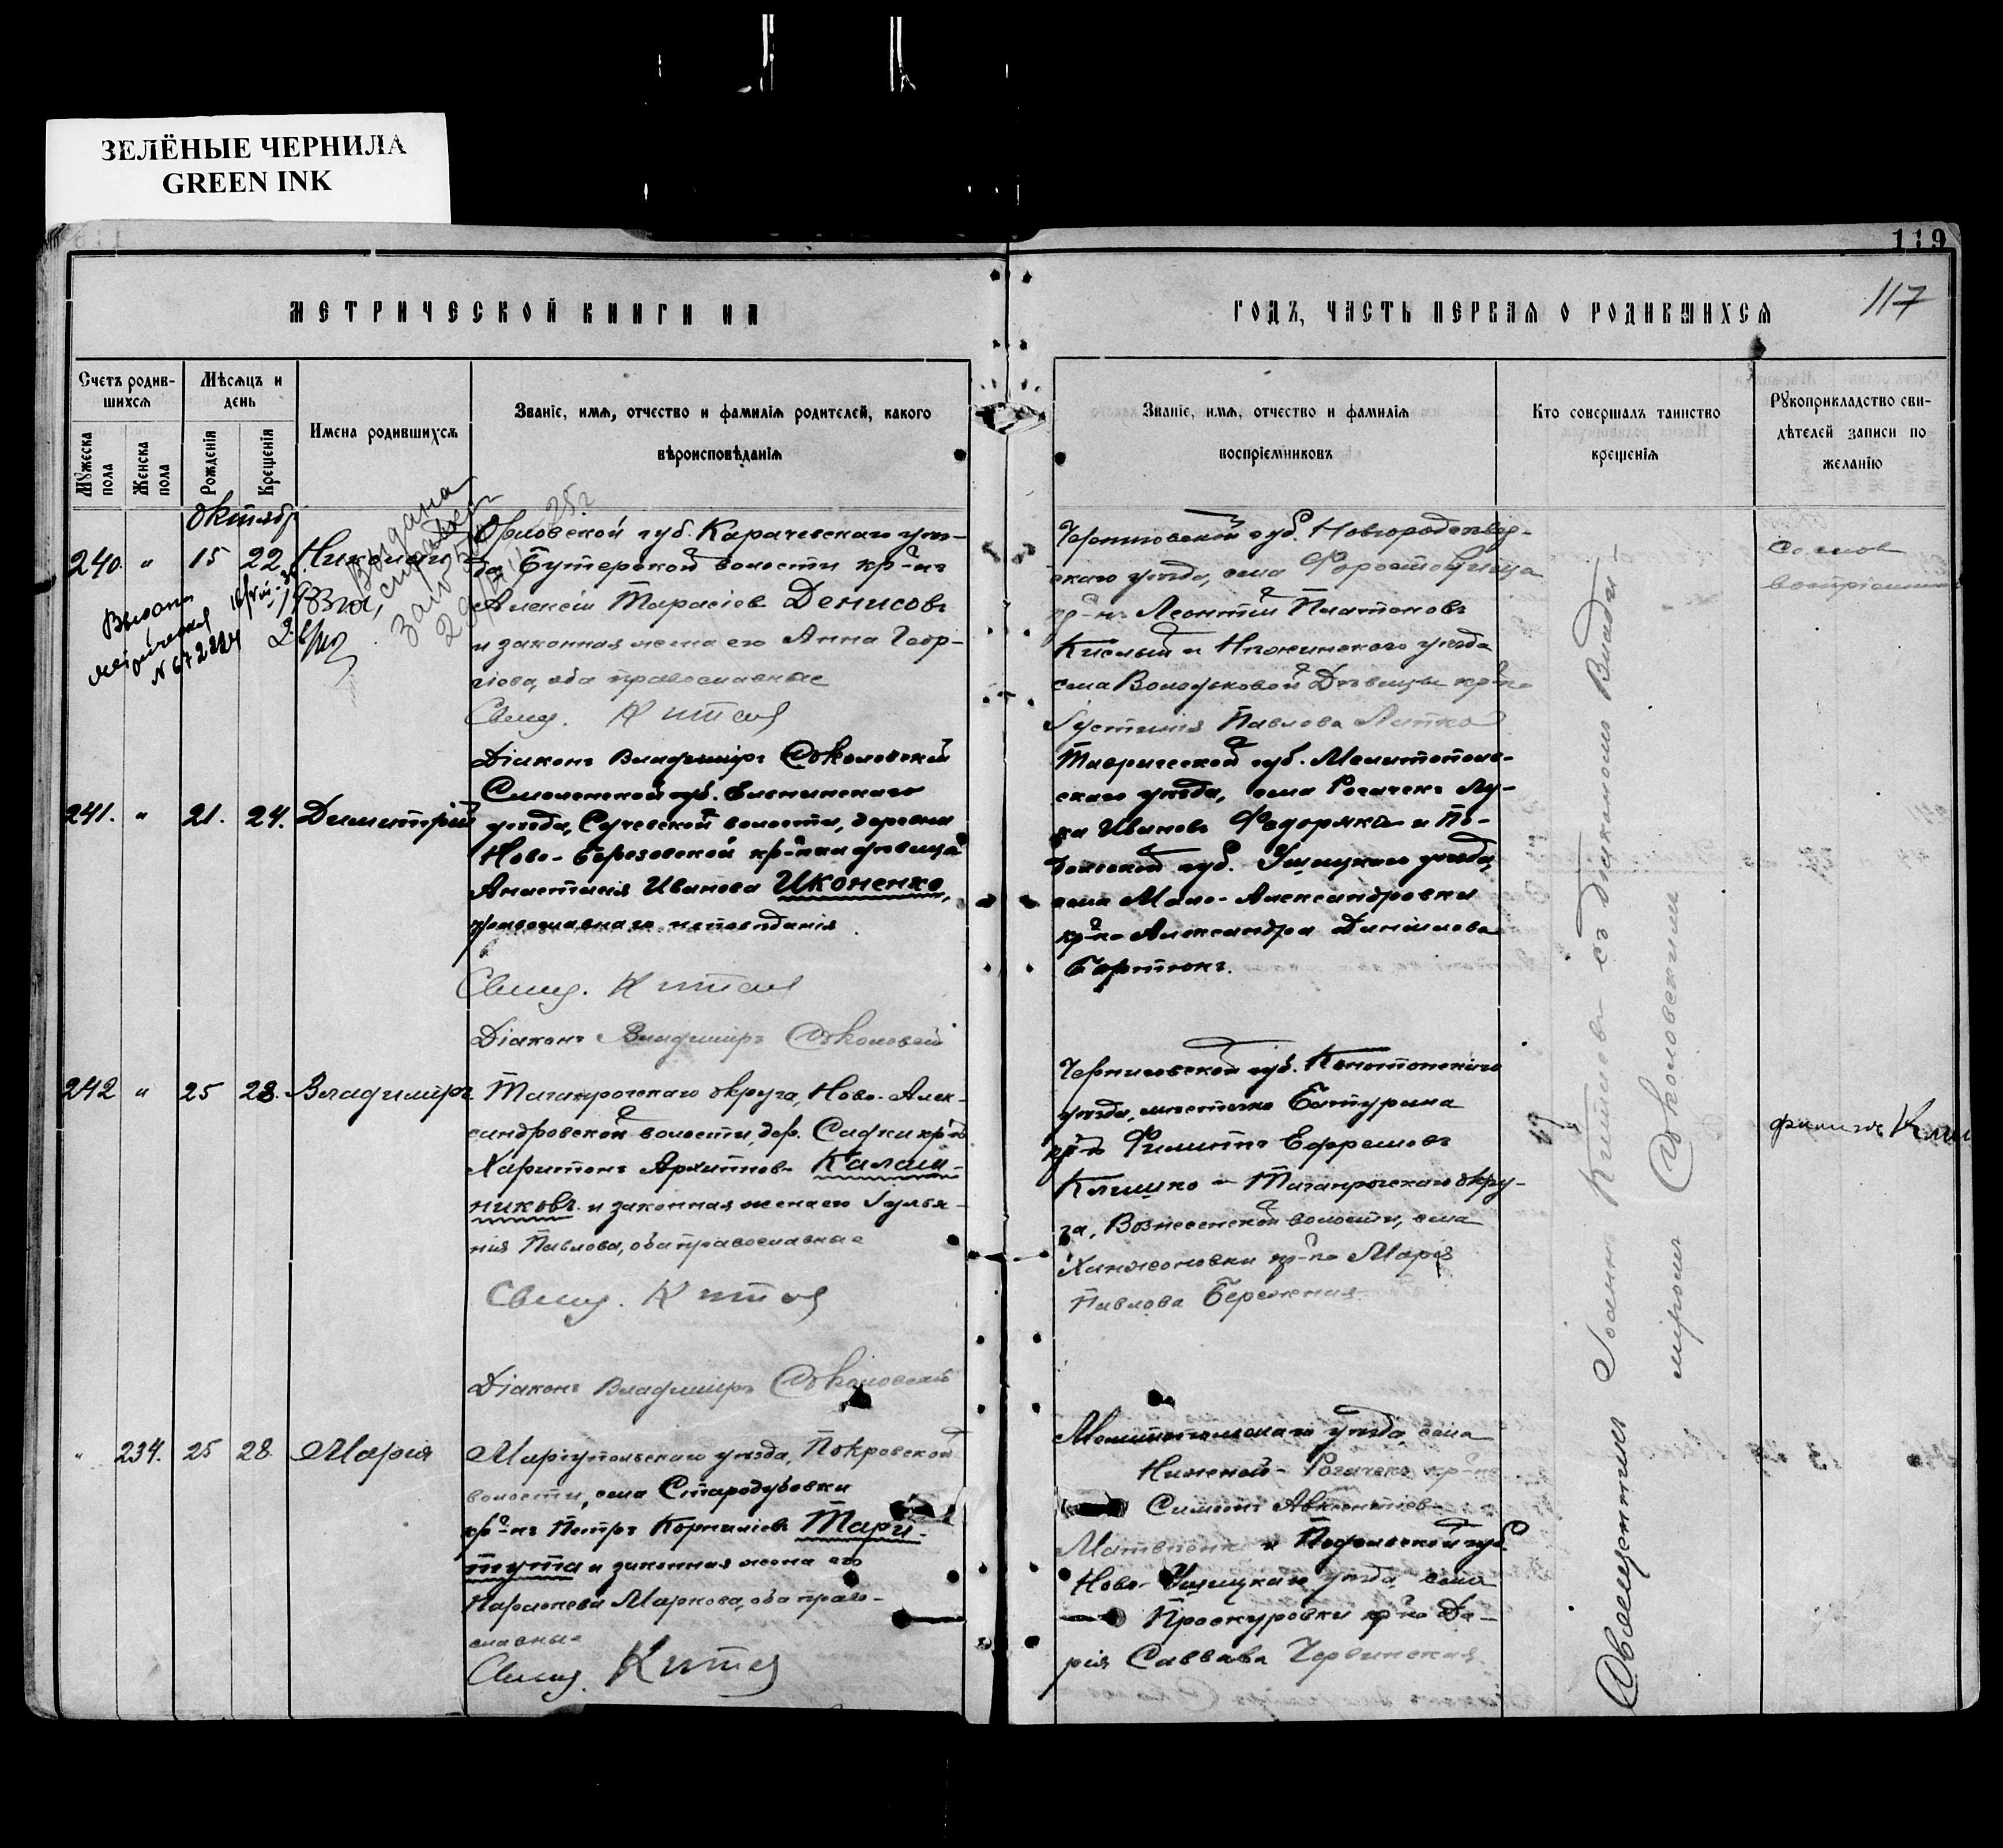 ЗЕЛЁНЫЕ ЧЕРНИЛА
GREEN INK
119
117
МЕТРИЧЕСКОЙ КНИГИ НА
ГОДЪ, ЧАСТЬ ПЕРВАЯ О РОДИВШИХСЯ
Счетъ родив-
шихся
Мѣсяцъ и
день
Имена родившихся
Званіе, имя, отчество и фамилія родителей, какого
вѣроисповѣданія
Мужеска
пола
Женска
пола
Рожденія
Крещенія
Званіе, имя, отчество и фамилія
воспріемниковъ
Кто совершалъ таинство
крещенія
Рукоприкладство сви-
дѣтелей записи по
желанію
Октябр
240. " 15 22. Николай
Выдана
справка
Орловской губ. Карачевскаго уѣз-
да, Бутерской волости кр-нъ
Алексій Тарасіевъ Денисовъ
и законная жена его Анна Геор-
гіева, оба православные
Свящ. Китаев
Діаконъ Владиміръ Соколовскій
Черниговской губ. Новгородсѣвер-
скаго уѣзда, села
кр-нъ Леонтій Платоновъ
Кислый и Нѣжинскаго уѣзда
села Володьковой Дѣвицы кр-ка
Іустинія Павлова Лапко
Со слов
241. " 21. 24. Димитрій
Смоленской губ. Ельнинскаго
уѣзда, волости, деревни
Ново-Березовской кр-нка дѣвица
Анастасія Иванова Иконенко,
православнаго исповѣданія
Свящ. Китаев
Діаконъ Владиміръ Соколовскій
Таврической губ. Мелитополь-
скаго уѣзда, села Рогачекъ Лу-
ка Ивановъ Федоряка и По-
дольской губ. Ушицкаго уѣзда,
села Мало-Александровки
кр-ка Александра Даниилова
242 " 25 28. Владиміръ
Таганрогскаго округа, Ново-Алек-
сандровской волости, дер. Садки кр-нъ
Харитонъ Архиповъ Калаш-
никовъ и законная жена его Іулья-
нія Павлова, оба православные
Свящ. Китаев
Діаконъ Владиміръ Соколовскій
Черниговской губ. Конотопскаго
уѣзда, мѣстечко Батурина
кр-нъ Филиппъ Ефремовъ
Клишко и Таганрогскаго окру-
га, Вознесенской волости, села
Ханжоновки кр-ка Марія
Павлова Бережная.
Филиппъ
" 234. 25 28 Марія
Маріупольскаго уѣзда, Покровской
волости, села Стародубовки
кр-нъ Петръ Корниліевъ Тару-
тута и законная жена его
Маркова, оба право-
славные
Свящ. Китаев
Мелитопольскаго уѣзда, села
Нижней-Рогачекъ кр-нъ
Симеонъ Авксентіев
и Подольской губ.
Ново-Ушицкаго уѣзда села
Проскуровки кр-ка Да-
рія Саввова Червинская.
Священникъ Іоаннъ Китаевъ съ діакономъ Влади-
міромъ Соколовскимъ